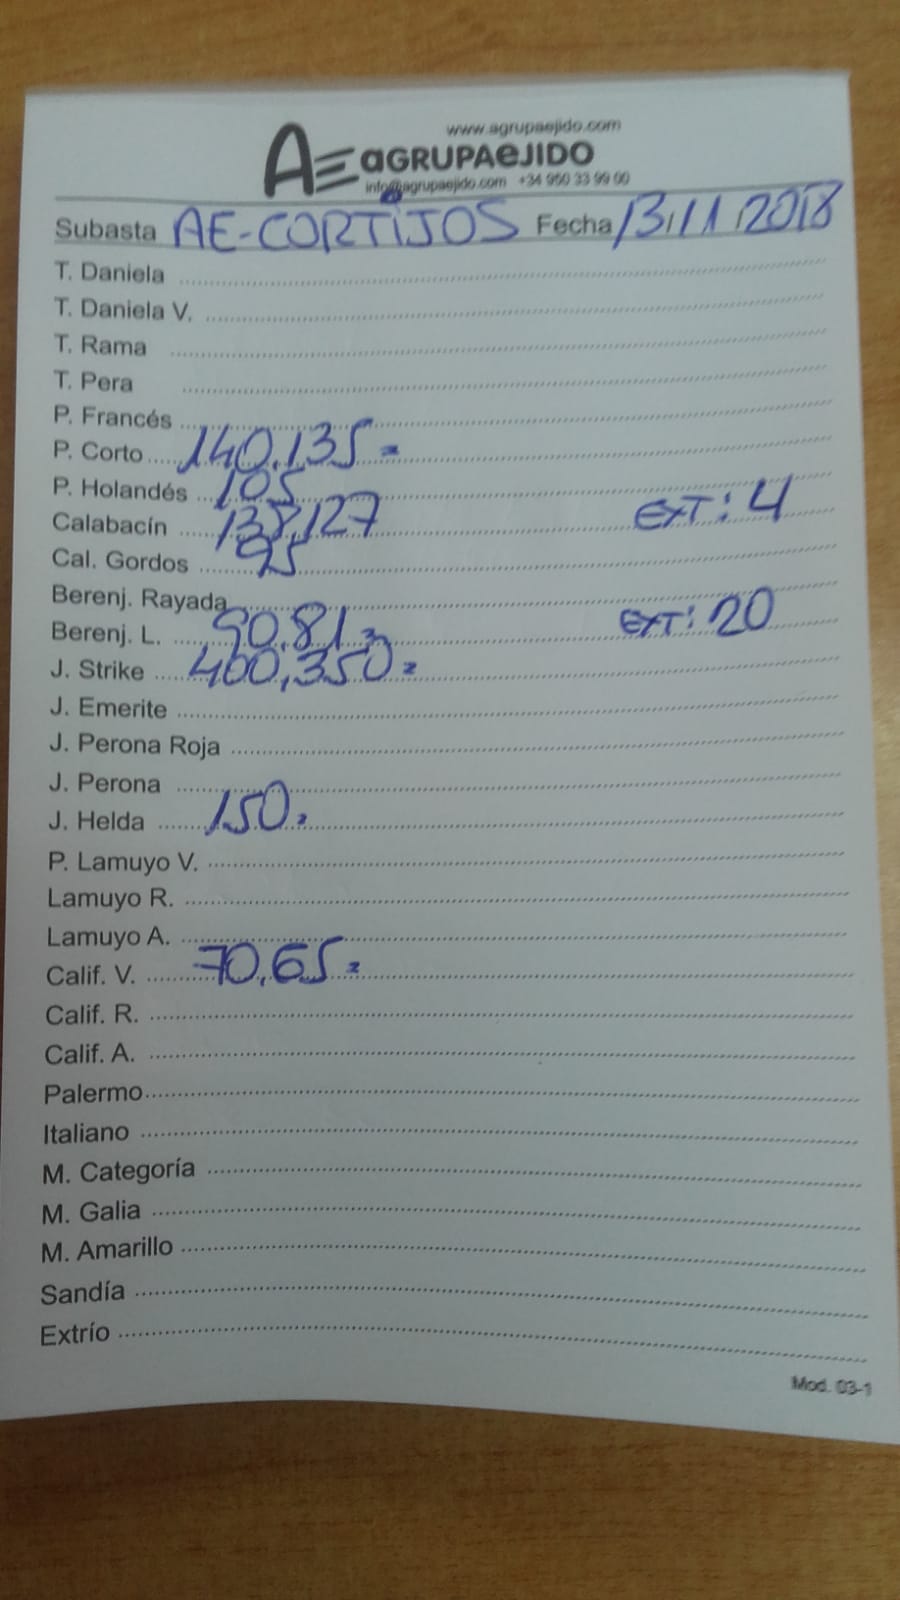 www.agrupaejido.com
AE aGRUPAeJIDO
info@agrupaejido.com +34 950 33 99 00
Subasta AE-CORTIJOS Fecha 13/11/2018
T. Daniela
T. Daniela V.
T. Rama
T. Pera
P. Francés
P. Corto 140,135=
P. Holandés 105
Calabacín 138,127 EXT: 4
Cal. Gordos 95
Berenj. Rayada
Berenj. L. 90,81= EXT: 20
J. Strike 400,350=
J. Emerite
J. Perona Roja
J. Perona
J. Helda 150=
P. Lamuyo V.
Lamuyo R.
Lamuyo A.
Calif. V. 70,65=
Calif. R.
Calif. A.
Palermo
Italiano
M. Categoría
M. Galia
M. Amarillo
Sandía
Extrío
Mod. 03-1